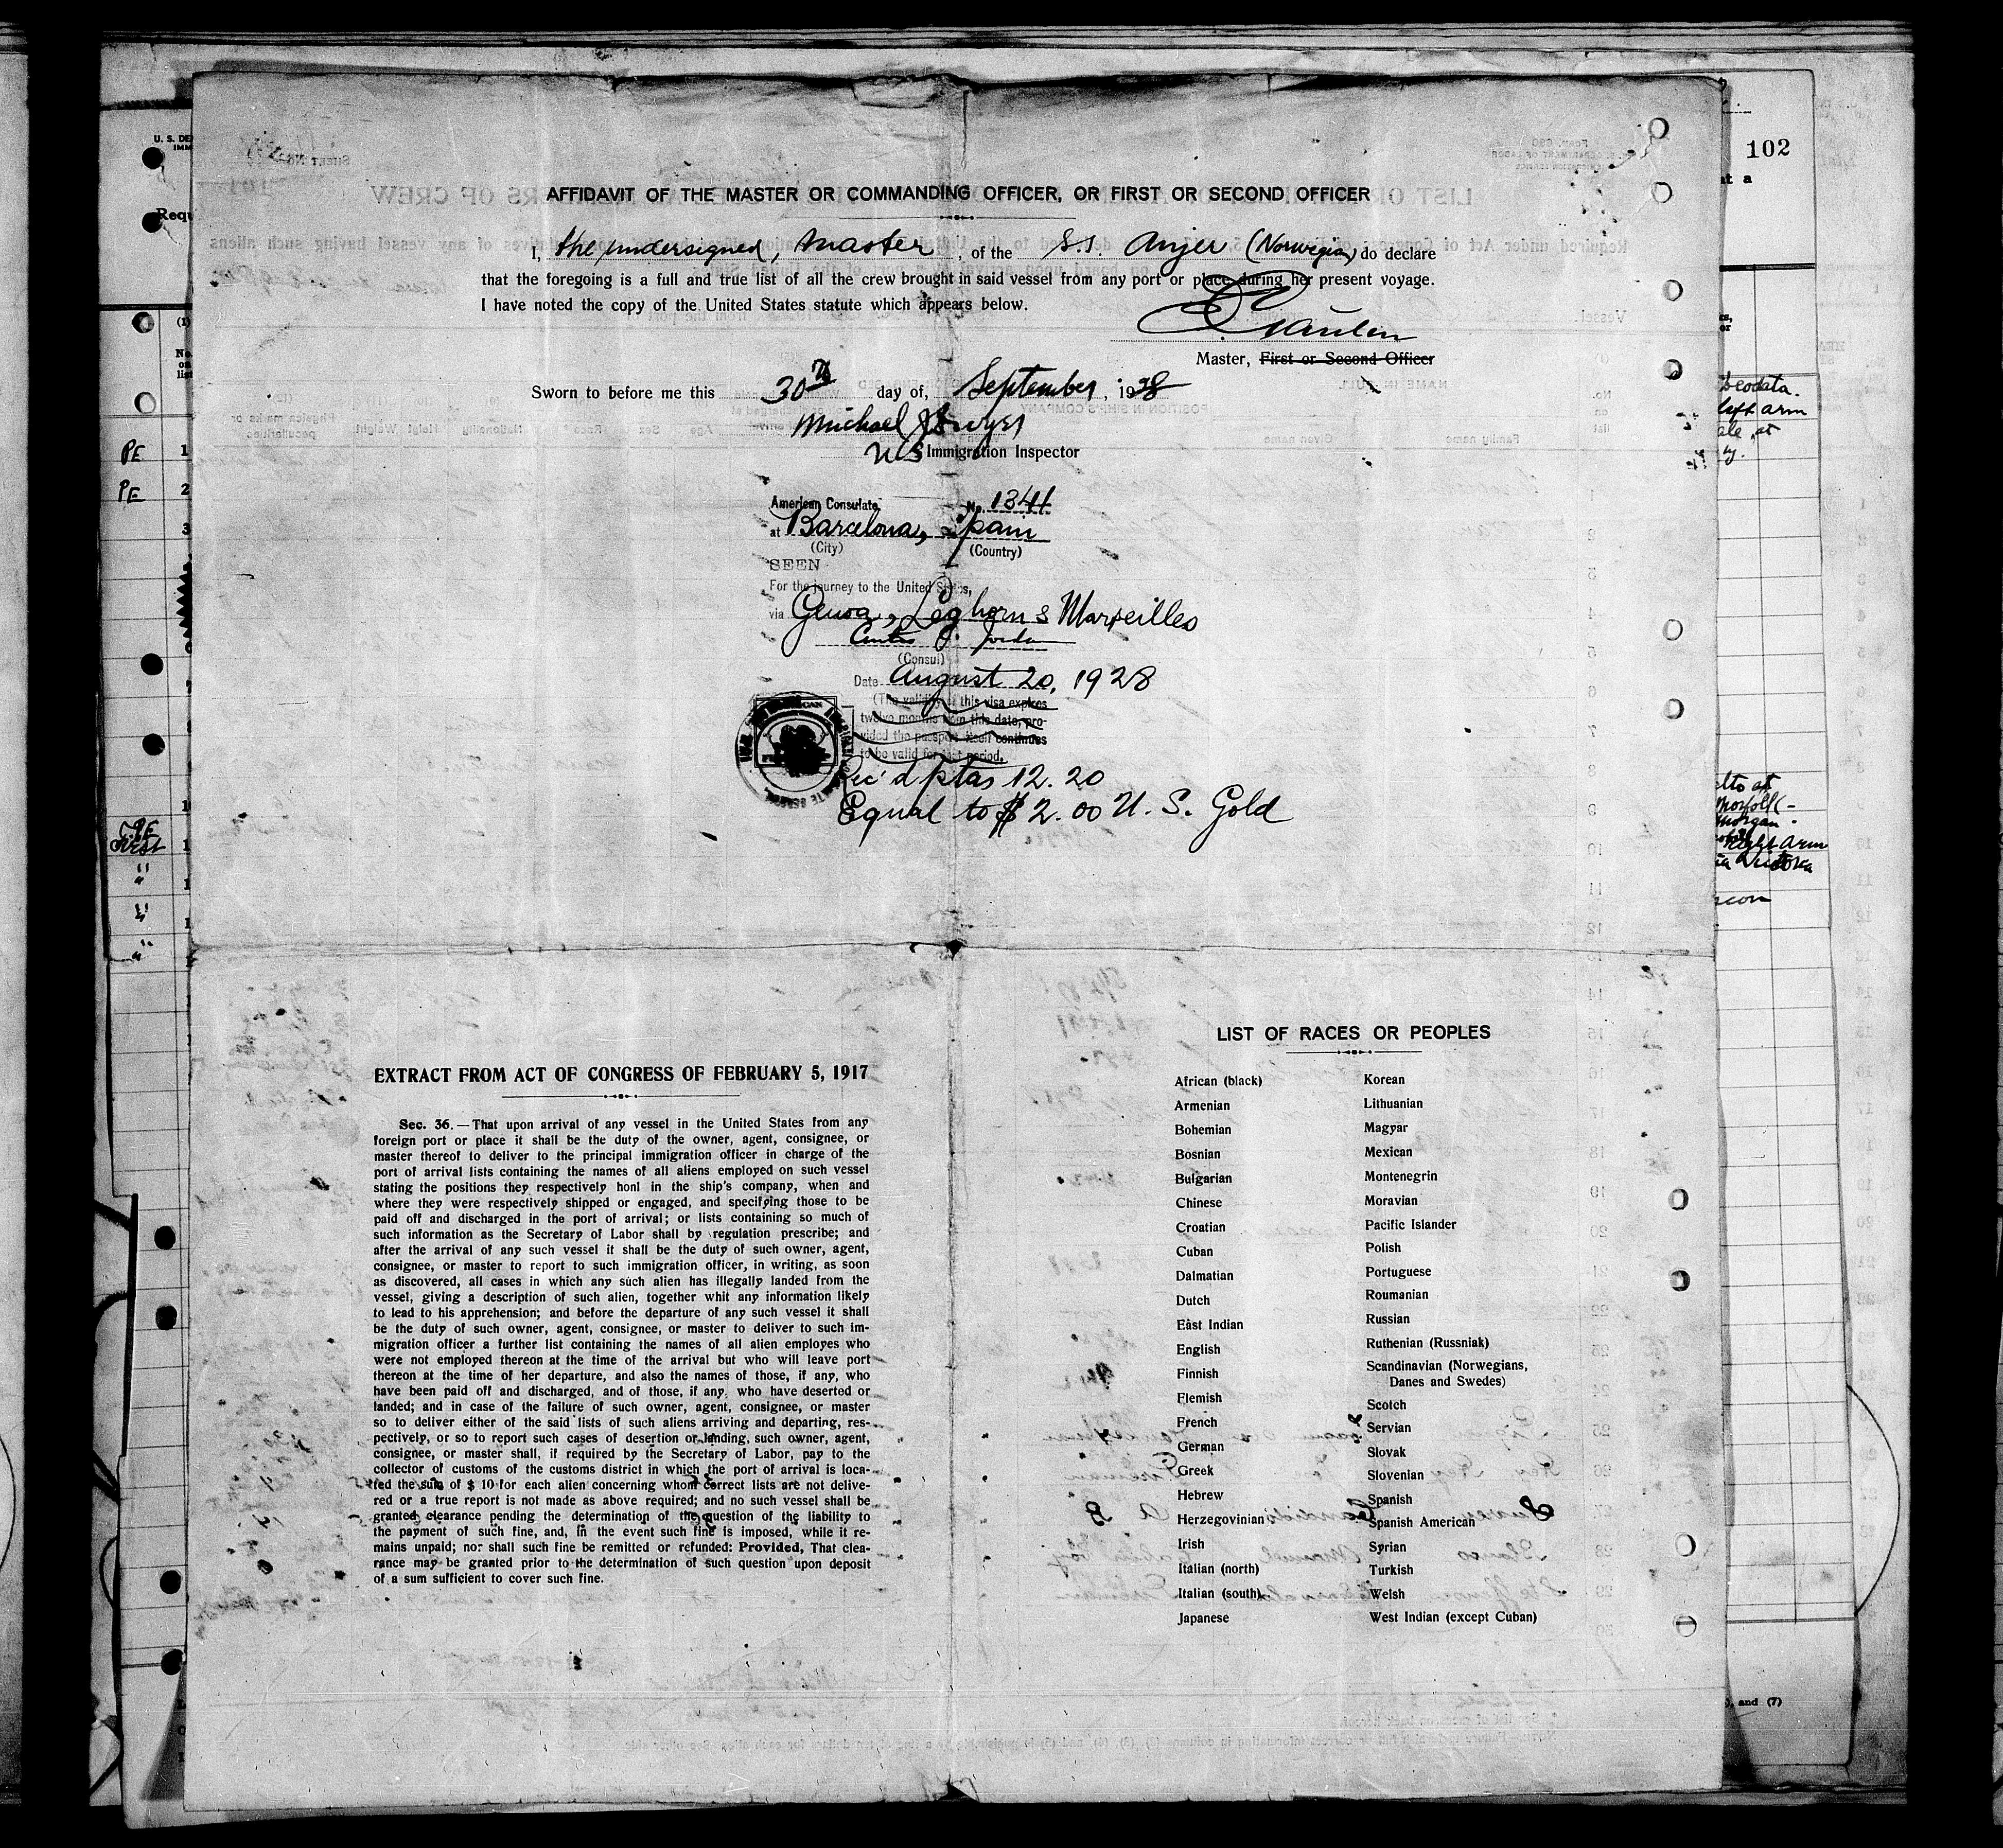 102
U. S. DE
IMM
Requ
at a
AFFIDAVIT OF THE MASTER OR COMMANDING OFFICER, OR FIRST OR SECOND OFFICER
I, the undersigned, master, of the S.S. Anjer (Norwegian) do declare
that the foregoing is a full and true list of all the crew brought in said vessel from any port or place during her present voyage.
I have noted the copy of the United States statute which appears below.
Master, First or Second Officer
Sworn to before me this 30th day of, September, 1928
Michael J Dwyer
US Immigration Inspector
American Consulate, No. 1341
at Barcelona, Spain
(City) (Country)
SEEN
For the journey to the United States,
via Genoa, Leghorn & Marseilles
Curtis C. Jordan
(Consul)
Date August 20, 1928
(The validity of this visa expires
twelve months from this date, pro-
vided the passport itself continues
to be valid for that period.
Rec'd ptas 12.20
Equal to $ 2.00 U. S. Gold
PE 1
PE 2
3
left arm
at
Norfolk -
Morgan -
Right arm
EXTRACT FROM ACT OF CONGRESS OF FEBRUARY 5, 1917
Sec. 36. — That upon arrival of any vessel in the United States from any
foreign port or place it shall be the duty of the owner, agent, consignee, or
master thereof to deliver to the principal immigration officer in charge of the
port of arrival lists containing the names of all aliens employed on such vessel
stating the positions they respectively honl in the ship's company, when and
where they were respectively shipped or engaged, and specifying those to be
paid off and discharged in the port of arrival; or lists containing so much of
such information as the Secretary of Labor shall by regulation prescribe; and
after the arrival of any such vessel it shall be the duty of such owner, agent,
consignee, or master to report to such immigration officer, in writing, as soon
as discovered, all cases in which any such alien has illegally landed from the
vessel, giving a description of such alien, together whit any information likely
to lead to his apprehension; and before the departure of any such vessel it shall
be the duty of such owner, agent, consignee, or master to deliver to such im-
migration officer a further list containing the names of all alien employes who
were not employed thereon at the time of the arrival but who will leave port
thereon at the time of her departure, and also the names of those, if any, who
have been paid off and discharged, and of those, if any. who have deserted or
landed; and in case of the failure of such owner, agent, consignee, or master
so to deliver either of the said lists of such aliens arriving and departing, res-
pectively, or so to report such cases of desertion or landing, such owner, agent,
consignee, or master shall, if required by the Secretary of Labor, pay to the
collector of customs of the customs district in which the port of arrival is loca-
ted the sum of $ 10 for each alien concerning whom correct lists are not delive-
red or a true report is not made as above required; and no such vessel shall be
granted clearance pending the determination of the question of the liability to
the payment of such fine, and, in the event such fine is imposed, while it re-
mains unpaid; nor shall such fine be remitted or refunded: Provided, That clea-
rance may be granted prior to the determination of such question upon deposit
of a sum sufficient to cover such fine.
LIST OF RACES OR PEOPLES
African (black)
Armenian
Bohemian
Bosnian
Bulgarian
Chinese
Croatian
Cuban
Dalmatian
Dutch
East Indian
English
Finnish
Flemish
French
German
Greek
Hebrew
Herzegovinian
Irish
Italian (north)
Italian (south)
Japanese
Korean
Lithuanian
Magyar
Mexican
Montenegrin
Moravian
Pacific Islander
Polish
Portuguese
Roumanian
Russian
Ruthenian (Russniak)
Scandinavian (Norwegians,
Danes and Swedes)
Scotch
Servian
Slovak
Slovenian
Spanish
Spanish American
Syrian
Turkish
Welsh
West Indian (except Cuban)
), and (7)